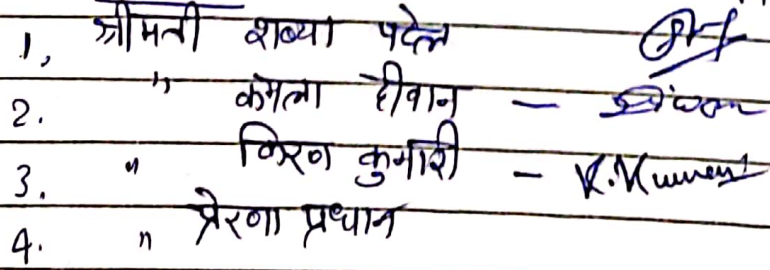 1. श्रीमती शब्या पटेल
2. " कमला दीवान —
3. " किरण कुमारी — K. Kumari
4. " प्रेरणा प्रधान